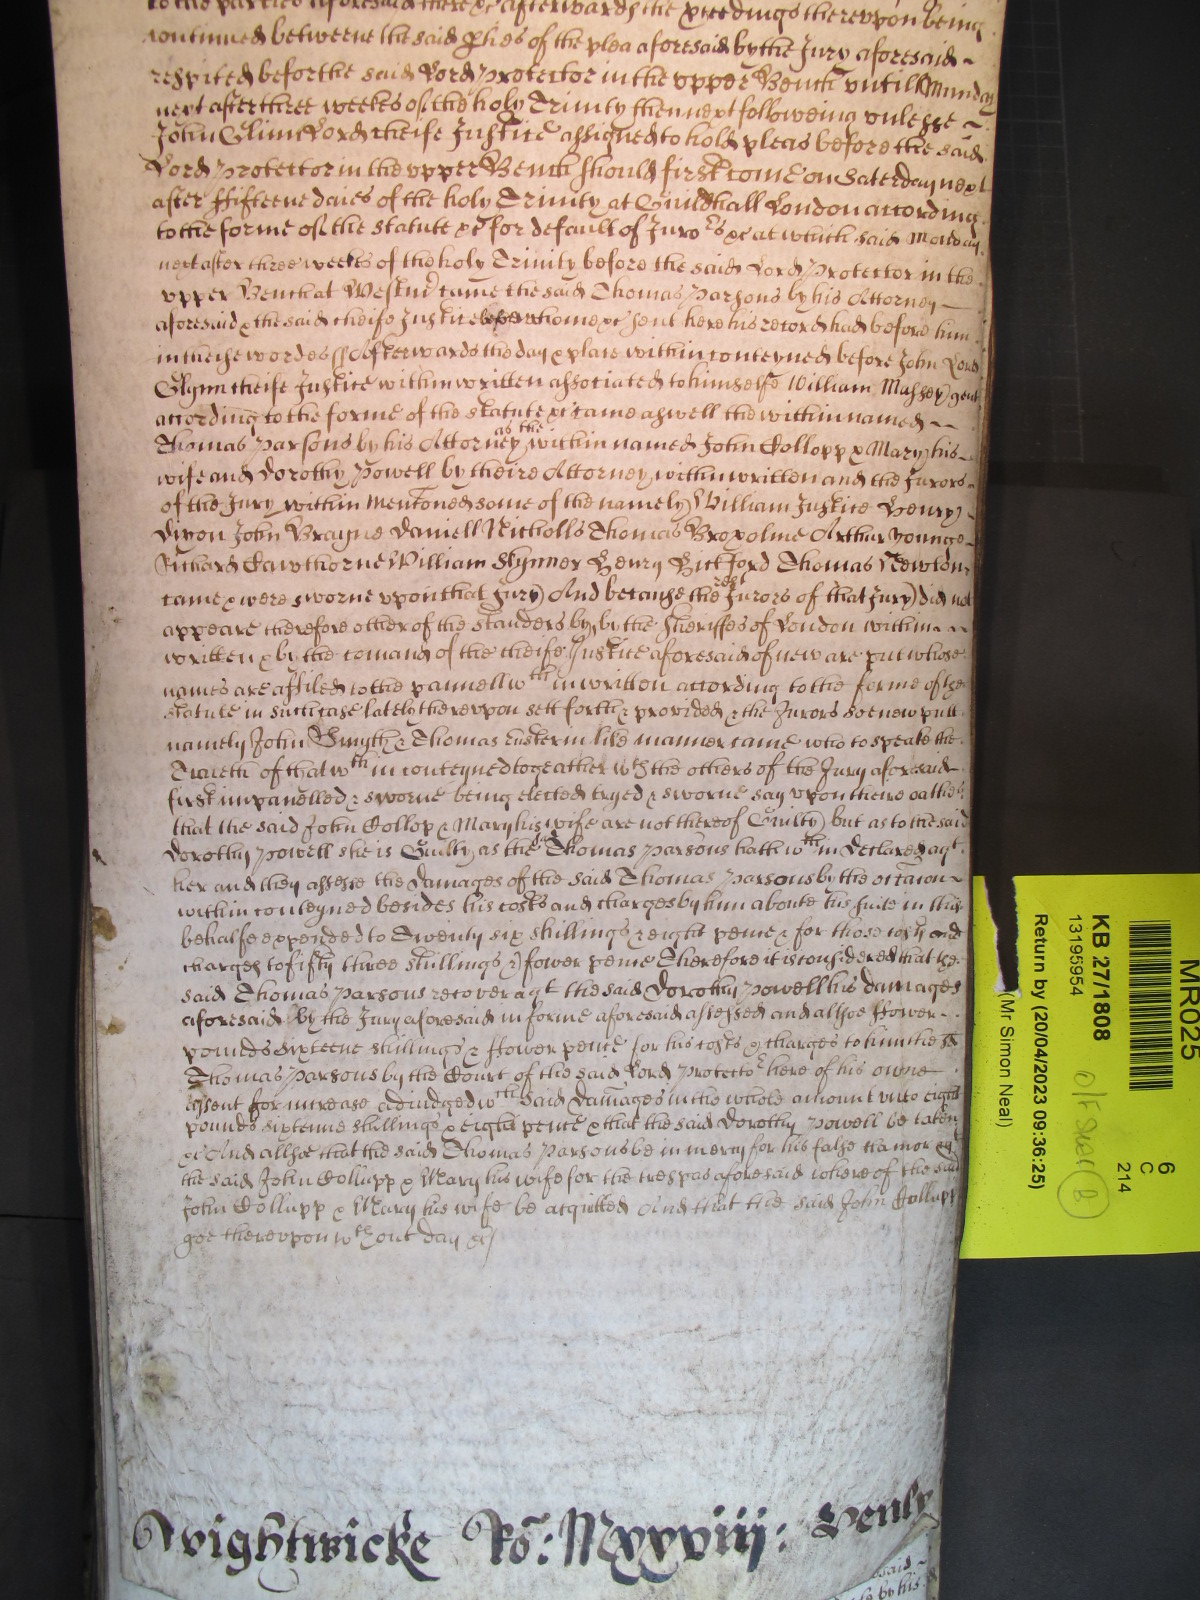 to the parties aforesaid there &c Afterwards the pceedings thereupon being
continued betweene the said pties of the plea aforesaid by the Jury aforesaid ~
respited before the said Lord Protector in the upper Bench untill Munday
next after three weekes of the holy Trinity then next following unlesse ~
John Glinn Lord cheife Justice assigned to hold pleas before the said
Lord Protector in the upper Bench should first come on Saterday next
after ffifteene daies of the holy Trinity at Guildhall London according
to the forme of the statute &c for default of Juro rs &c at which said Monday
next after three weekes of the holy Trinity before the said Lord Protector in the
upper Bench at Westm came the said Thomas Parsons by his Attorney
aforesaid & the said cheife Justice before whome &c sent here his record had before him
in theise wordes ss Afterwards the day & place within conteyned before John Lord
Glynn cheife Justice within written associated to himselfe William Massey gent
according to the forme of the statute &c came aswell the within named ~~
Thomas Parsons by his Attorney as the within named John Collopp & Mary his
wife and Dorothy Powell by theire Attorney within written and the Jurors
of the Jury within mentoned some of the namely William Justice Henry
Dixon John Brayne Daniell Nicholls Thomas Broxolme Arthur Younge
Richard Cawthorne William Skynner Henry Bickford Thomas Newton
came & were sworne upon that Jury And because the rest Jurors of that Jury did not
appeare therefore other of the standers by by the Sheriffes of London within ~~
written & by the comand of the cheife Justice aforesaid of new are put whose
names are affiled to the pannell wth in written according to the forme of the
statute in such case lately thereupon sett forth & provided & the Jurors soe new putt
namely John Smyth & Thomas in like manner came who to speake the
Trueth of that wth in conteyned togeather wth the others of the Jury aforesaid
first impanelled & sworne being elected tryed & sworne say upon theire oathes
that the said John Collop & Mary his wife are not thereof Guilty but as to the said
Dorothy Powell she is Guilty as the sd Thomas Parsons hath wth in Declared agt
her and they assesse the damages of the said Thomas Parsons by the occacon
within conteyned besides his costs and charges by him aboute his suite in this
behalfe expended to Twenty six shillings & eight pence & for those costs and
charges to fifty three shillings & fower pence Therefore it is considered that the
said Thomas Parsons recover agt the said Dorothy Powell his damages
aforesaid by the Jury aforesaid in forme aforesaid assessed and alsoe ffower
pounds sixteene shillings & ffower pence for his costs & charges to him the sd
Thomas Parsons by the Court of the said Lord Protector here of his owne
assent for increase adiudged wch said damages in the whole amount unto eight
pounds sixteene shillings & eight pence & that the said Dorothy Powell be taken
&c And alsoe that the said Thomas Parsons be in mercy for his false clamor agt
the said John Collupp & Mary his wife for the trespas aforesaid whereof the said
John Collupp & Mary his wife be acquitted And that the said John Collupp
goe thereupon wth out day &c
Wightwicke Ro: Mxxxviij:
said ~
by his
MR025
6
C
214
KB 27/1808
13195954
Return by (20/04/2023 09:36:25)
(Mr Simon Neal)